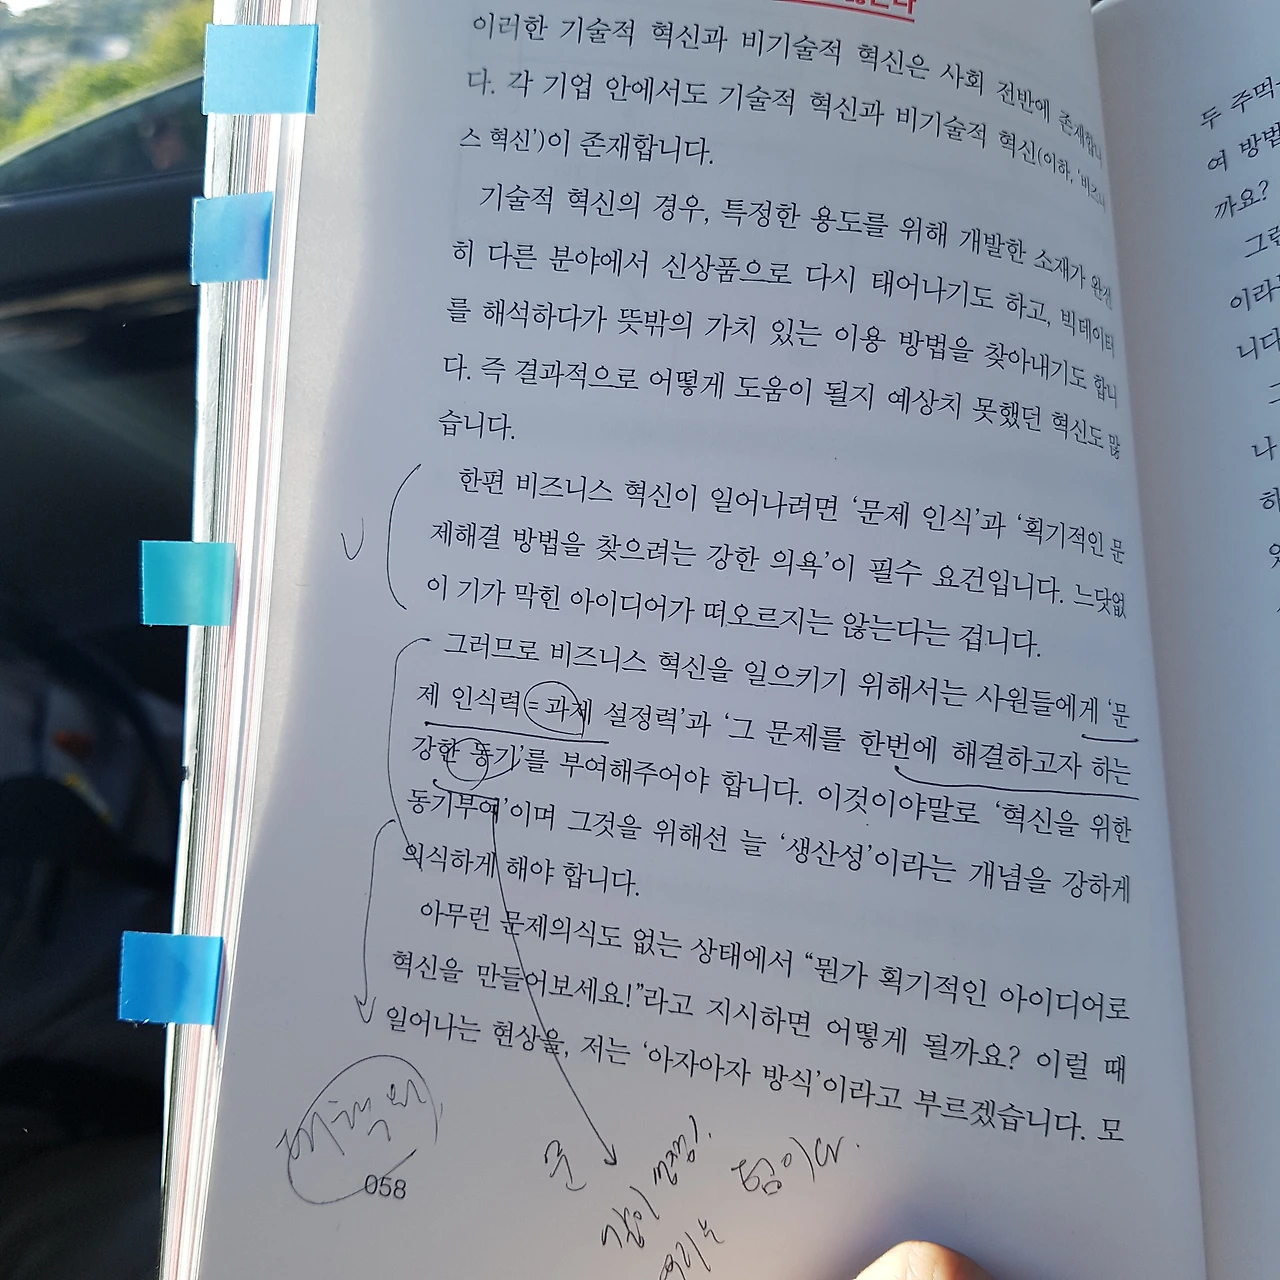 이러한 기술적 혁신과 비기술적 혁신은 사회 전반에 존재합니
다. 각 기업 안에서도 기술적 혁신과 비기술적 혁신(이하, '비즈니
스 혁신')이 존재합니다.
기술적 혁신의 경우, 특정한 용도를 위해 개발한 소재가 완전
히 다른 분야에서 신상품으로 다시 태어나기도 하고, 빅데이터
를 해석하다가 뜻밖의 가치 있는 이용 방법을 찾아내기도 합니
다. 즉 결과적으로 어떻게 도움이 될지 예상치 못했던 혁신도 많
습니다.
한편 비즈니스 혁신이 일어나려면 '문제 인식'과 '획기적인 문
제해결 방법을 찾으려는 강한 의욕'이 필수 요건입니다. 느닷없
이 기가 막힌 아이디어가 떠오르지는 않는다는 겁니다.
그러므로 비즈니스 혁신을 일으키기 위해서는 사원들에게 '문
제 인식력=과제 설정력'과 '그 문제를 한번에 해결하고자 하는
강한 동기'를 부여해주어야 합니다. 이것이야말로 '혁신을 위한
동기부여'이며 그것을 위해선 늘 '생산성'이라는 개념을 강하게
의식하게 해야 합니다.
아무런 문제의식도 없는 상태에서 “뭔가 획기적인 아이디어로
혁신을 만들어보세요!”라고 지시하면 어떻게 될까요? 이럴 때
일어나는 현상을, 저는 '아자아자 방식'이라고 부르겠습니다. 모
058
두 주먹
여 방법
까요?
이라
니다
나
하